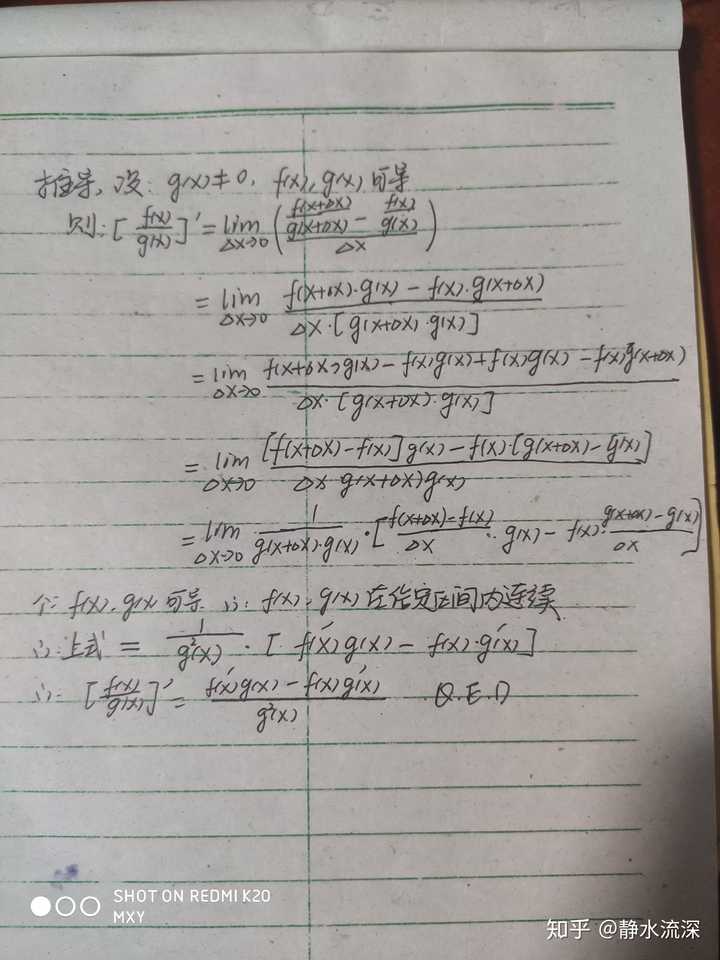 推导，设：g(x)≠0，f(x)，g(x)可导
则：[f(x)/g(x)]' = lim_{Δx→0} ((f(x+Δx)/g(x+Δx) − f(x)/g(x))/Δx)
= lim_{Δx→0} (f(x+Δx)·g(x) − f(x)·g(x+Δx))/(Δx·[g(x+Δx)·g(x)])
= lim_{Δx→0} (f(x+Δx)g(x) − f(x)g(x) + f(x)g(x) − f(x)g(x+Δx))/(Δx·[g(x+Δx)·g(x)])
= lim_{Δx→0} ([f(x+Δx)−f(x)]g(x) − f(x)·[g(x+Δx)−g(x)])/(Δx·g(x+Δx)g(x))
= lim_{Δx→0} 1/(g(x+Δx)·g(x))·[(f(x+Δx)−f(x))/Δx·g(x) − f(x)·(g(x+Δx)−g(x))/Δx]
∵ f(x)，g(x)可导 ∴ f(x)，g(x)在给定区间内连续
∴ 上式 = 1/g²(x)·[f'(x)g(x) − f(x)·g'(x)]
∴ [f(x)/g(x)]' = (f'(x)g(x) − f(x)g'(x))/g²(x) Q.E.D
SHOT ON REDMI K20
MXY
知乎 @静水流深